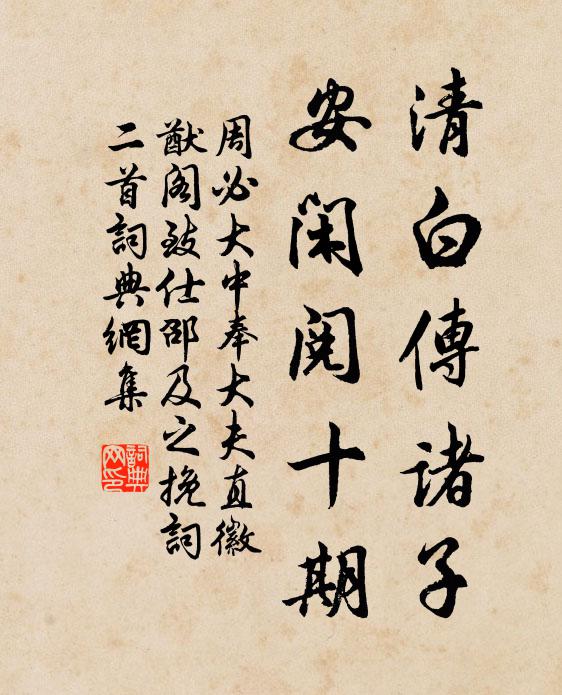 清白傳諸子
安閑閱十期
周必大中奉大夫直徽
猷閣致仕邵及之挽詞
二首詞典網集
詞典网印